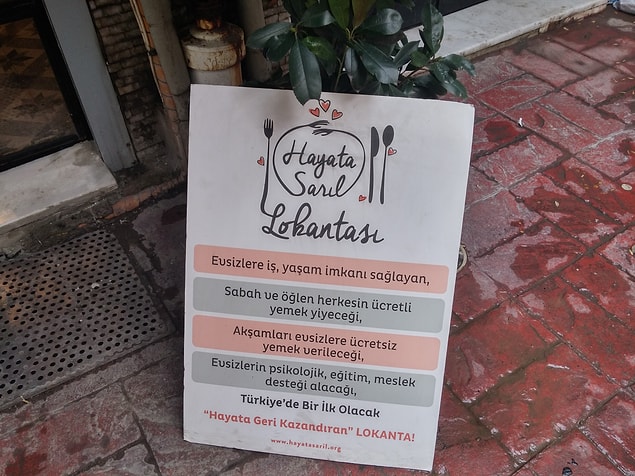 Hayata
Sarıl
Lokantası
Evsizlere iş, yaşam imkanı sağlayan,
Sabah ve öğlen herkesin ücretli
yemek yiyeceği,
Akşamları evsizlere ücretsiz
yemek verileceği,
Evsizlerin psikolojik, eğitim, meslek
desteği alacağı,
Türkiye'de Bir İlk Olacak
“Hayata Geri Kazandıran” LOKANTA!
www.hayatasaril.org